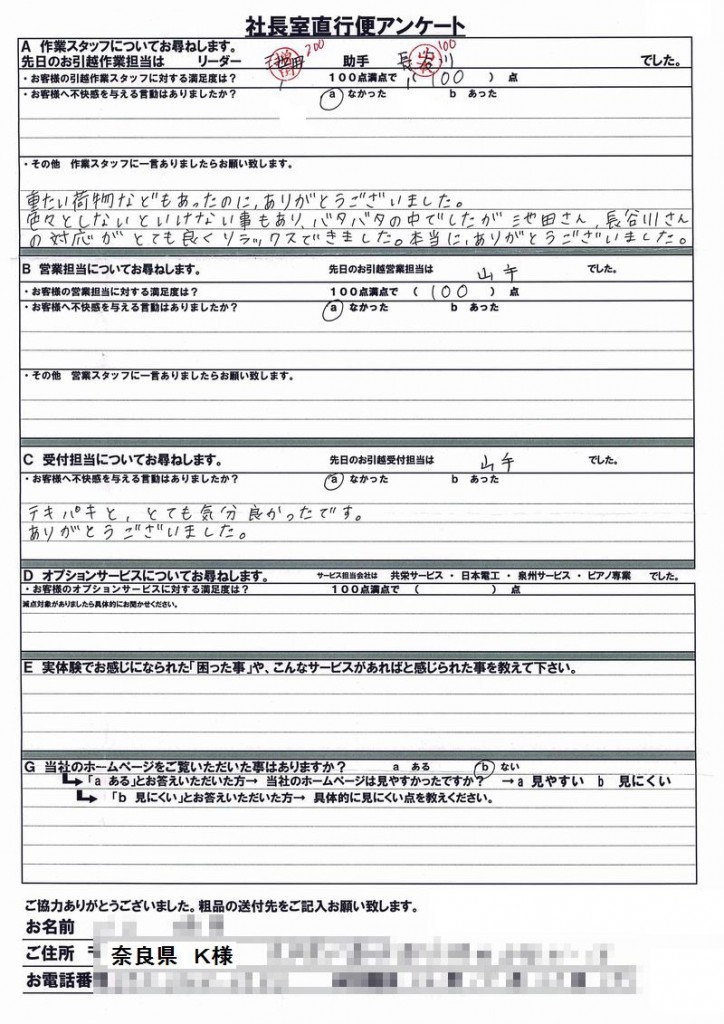 社長室直行便アンケート
A 作業スタッフについてお尋ねします。
先日のお引越作業担当は リーダー 池田 200 助手 長谷川 100 でした。
・お客様の引越作業スタッフに対する満足度は? 100点満点で ( 100 ) 点
・お客様へ不快感を与える言動はありましたか? a なかった b あった
・その他 作業スタッフに一言ありましたらお願い致します。
重たい荷物などもあったのに、ありがとうございました。
色々としないといけない事もあり、バタバタの中でしたが 池田さん、長谷川さん
の対応がとても良くリラックスできました。本当に、ありがとうございました。
B 営業担当についてお尋ねします。 先日のお引越営業担当は でした。
・お客様の営業担当に対する満足度は? 100点満点で ( 100 ) 点
・お客様へ不快感を与える言動はありましたか? a なかった b あった
・その他 営業スタッフに一言ありましたらお願い致します。
C 受付担当についてお尋ねします。 先日のお引越受付担当は でした。
・お客様へ不快感を与える言動はありましたか? a なかった b あった
テキパキと、とても気分良かったです。
ありがとうございました。
D オプションサービスについてお尋ねします。 サービス担当会社は 共栄サービス ・ 日本電工 ・ 泉州サービス ・ ピアノ専業 でした。
・お客様のオプションサービスに対する満足度は? 100点満点で ( ) 点
減点対象がありましたら具体的にお聞かせください。
E 実体験でお感じになられた「困った事」や、こんなサービスがあればと感じられた事を教えて下さい。
G 当社のホームページをご覧いただいた事はありますか? a ある b ない
「a ある」とお答えいただいた方→ 当社のホームページは見やすかったですか? →a 見やすい b 見にくい
「b 見にくい」とお答えいただいた方→ 具体的に見にくい点を教えください。
ご協力ありがとうございました。粗品の送付先をご記入お願い致します。
お名前
ご住所 〒 奈良県 K様
お電話番